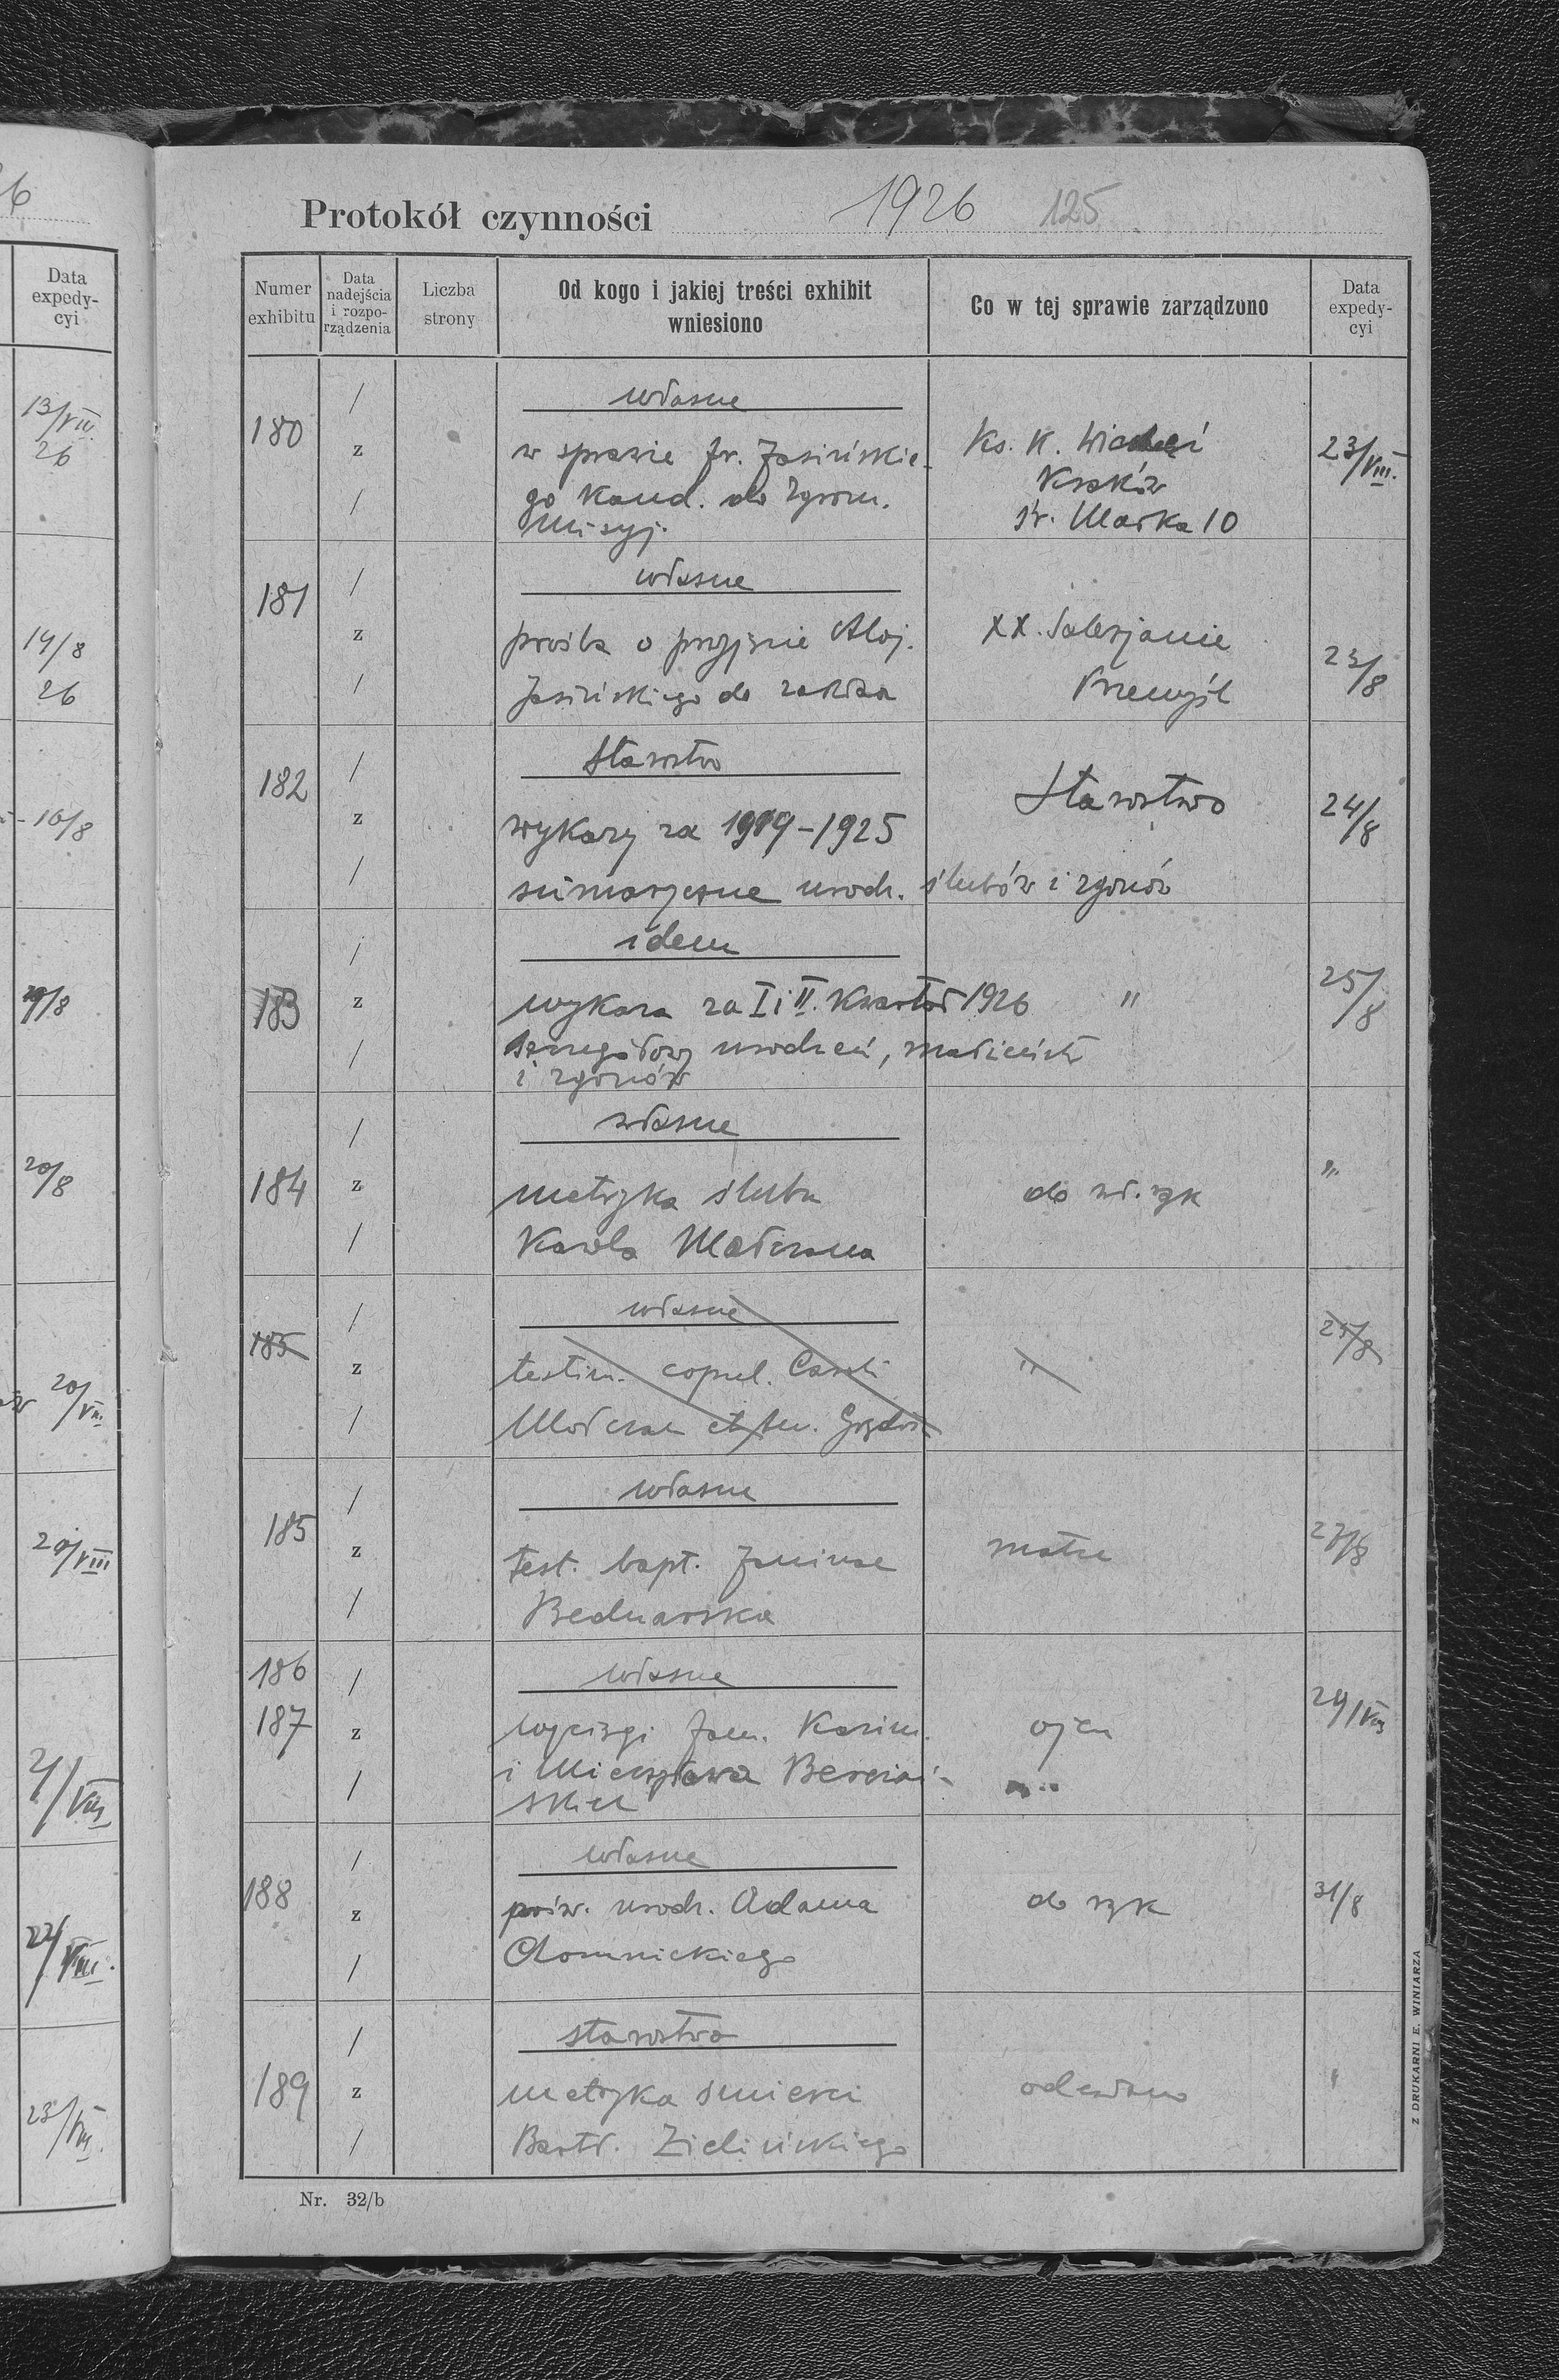 26
Data
expedy-
cyi
13/VIII.
26
14/8
26
16/8
19/8
20/8
20/VIII.
20/VIII
21/VIII
22/VIII.
23/VIII.
Protokół czynności 1926 125
Numer
exhibitu
Data
nadejścia
i rozpo-
rządzenia
Liczba
strony
Od kogo i jakiej treści exhibit
wniesiono
Co w tej sprawie zarządzono
Data
expedy-
cyi
180
/
z
/
własne
w sprawie Fr. Jasińskie-
go Kand. do Zgrom.
Misyj.
Ks. K.
Kraków
św. Marka 10
23/VIII.
181
/
z
/
własne
prośba o przyjęcie Aloj.
Jasińskiego do zakładu
XX. Salezjanie
Przemyśl
23/8
182
/
z
/
Starostwo
wykazy za 1919-1925
sumaryczne urodz. ślubów i zgonów
Starostwo
24/8
183
/
z
/
idem
wykaza za I i II. Kwartał 1926 "
szczegółowy urodzeń, małżeństw
i zgonów
25/8
184
/
z
/
własne
metryka ślubu
Karola Malczana
do wł. rąk
"
185
/
z
/
własne
testim. copul. Caroli
et
"
25/8
185
/
z
/
własne
test. bapt. Janinae
Bednarska
matce
27/8
186
187
/
z
/
własne
wyciągi Jan. Kazim.
i Mieczysława
skich
ojcu
"
29/VIII
188
/
z
/
własne
pośw. urodz. Adama
Chomnickiego
do rąk
31/8
189
/
z
/
starostwo
metryka śmierci
Bartł. Zielińskiego
odesłano
"
Nr. 32/b
Z DRUKARNI E. WINIARZA